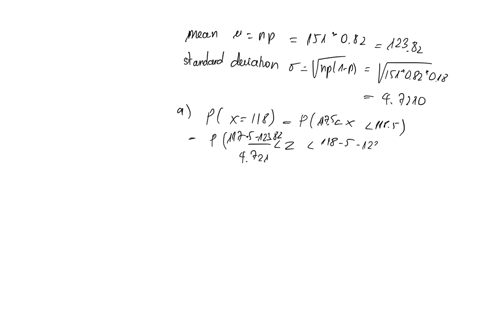 mean μ = np = 151*0.82 = 123.82
standard deviation σ = √np(1-p) = √151*0.82*0.18
= 4.7210
a) P( x=118) = P(117.5< x <118.5)
= P(117-5-123.82/4.721 <Z < 118-5-12